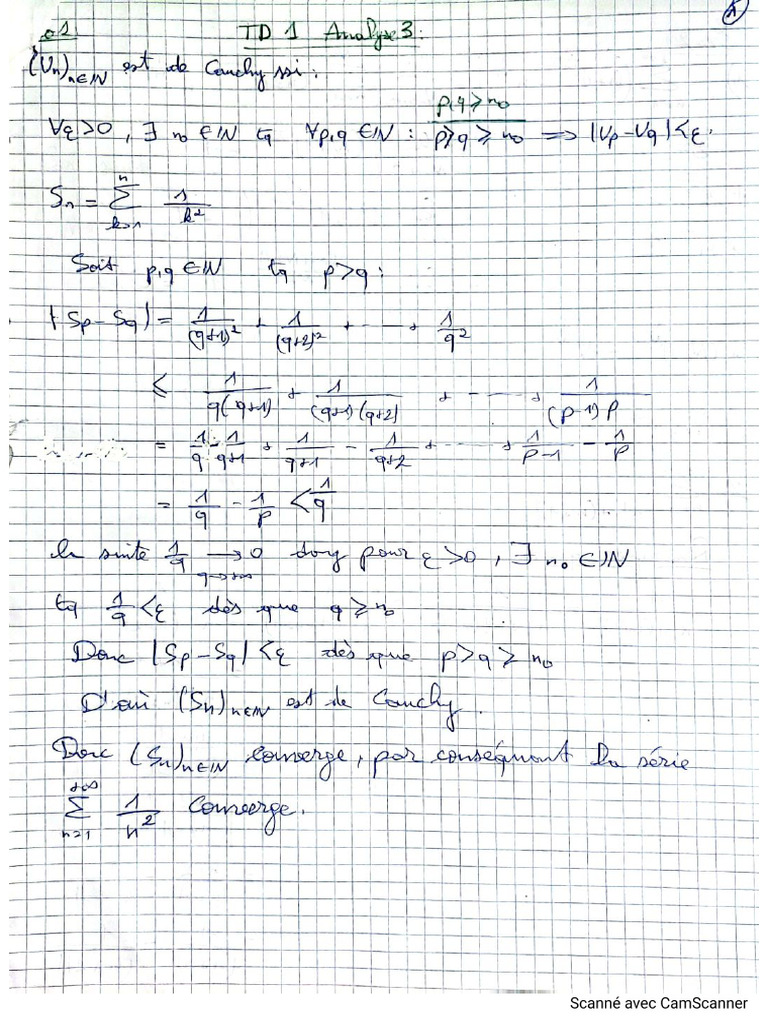 1
o1 TD 1 Analyse 3.
(Un)n∈IN est de Cauchy ssi :
p,q ≥ n₀
∀ε>0, ∃ n₀ ∈ IN tq ∀p,q ∈ IN : p>q ≥ n₀ ⟹ |Up-Uq|<ε.
Sn = Σ_{k=1}^{n} 1/k²
Soit p,q ∈ IN tq p>q :
|Sp-Sq| = 1/(q+1)² + 1/(q+2)² + ---- + 1/q²
≤ 1/q(q+1) + 1/(q+1)(q+2) + ---- + 1/(p-1)p
= 1/q - 1/q+1 + 1/q+1 - 1/q+2 + ---- + 1/p-1 - 1/p
= 1/q - 1/p < 1/q
la suite 1/q → 0 q→+∞ donc pour ε>0, ∃ n₀ ∈ IN
tq 1/q <ε dès que q ≥ n₀
Donc |Sp-Sq|<ε dès que p>q ≥ n₀
D'où (Sn)n∈IN est de Cauchy.
Donc (Sn)n∈IN converge, par conséquent la série
Σ_{n=1}^{+∞} 1/n² Converge.
Scanné avec CamScanner